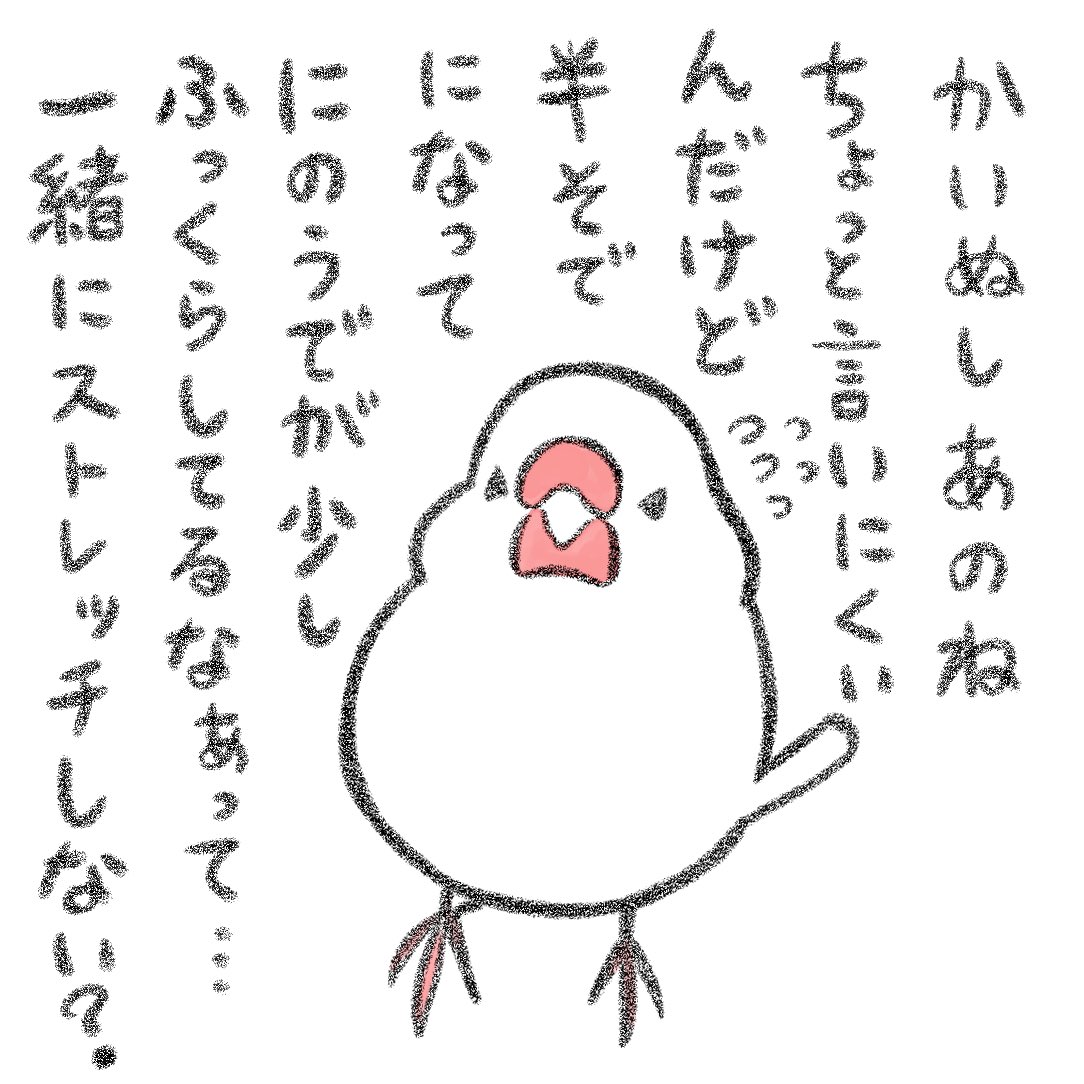 かいぬしあのね
ちょっと言いにくい
んだけど
半そで
になって
にのうでが少し
ふっくらしてるなぁって…
一緒にストレッチしない?